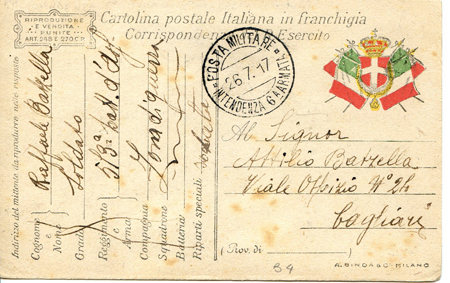 RIPRODUZIONE
E VENDITA
PUNITE
ART. 248 E 270 C.P.
Cartolina postale Italiana in franchigia
Corrispondenza R. Esercito
POSTA MILITARE
26.7.17
INTENDENZA 6A ARMATA
Indirizzo del mittente da riprodurre nelle risposte
Cognome e Nome
Raffaele Batzella
Grado
Soldato
Reggimento e Arma
Compagnia
Squadrone
Batteria
Zona di guerra
Riparti speciali
Al Signor
Attilio Batzella
Viale Ospizio N° 26
Cagliari
(Prov. di
)
A. BINDA & C. MILANO